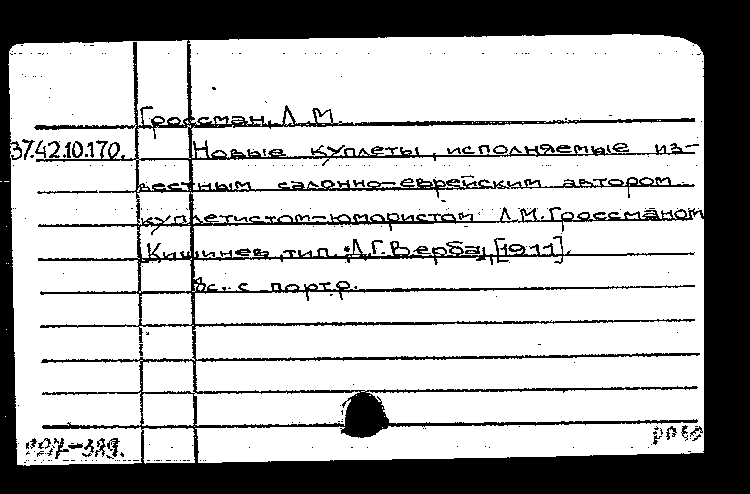 Гроссман, Л.М.
37.42.10.170. Новые куплеты, исполняемые из-
вестным салонно-еврейским автором
куплетистом-юмористом Л.М.Гроссманом
Кишинев, тип. Л.Г.Верба, [1911].
8с. с портр.